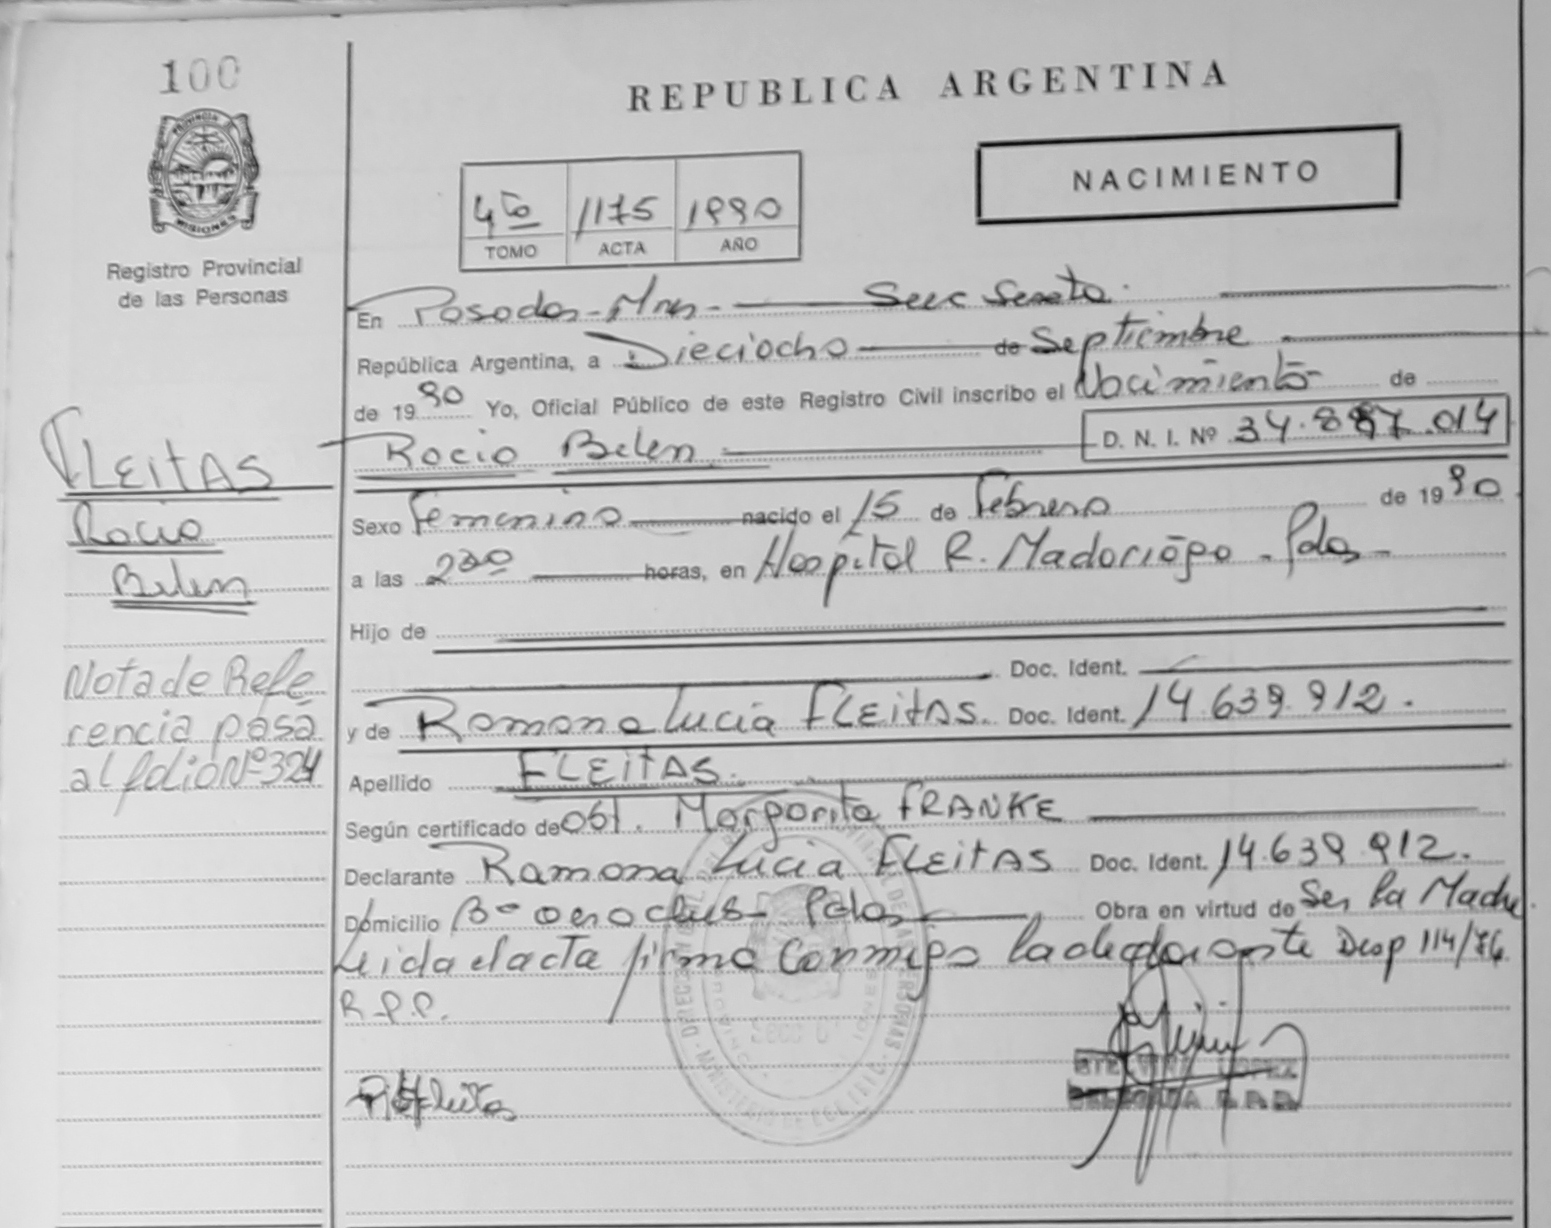 100
REPUBLICA ARGENTINA
PROVINCIA
MISIONES
NACIMIENTO
4to 1175 1990
TOMO ACTA AÑO
Registro Provincial
de las Personas
En Posadas-Mnes- Secc Sexta.
República Argentina, a Dieciocho de Septiembre
de 1990 Yo, Oficial Público de este Registro Civil inscribo el Nacimiento de
Rocio Belen D. N. I. Nº 34.887.014
FLEitAS
Rocio
Belen
Sexo Femenino nacido el 15 de Febrero de 1990
a las 230 horas, en Hospital R. Madariaga - Pdas-
Hijo de
Doc. Ident.
Nota de Refe
rencia pasa
al folio Nº 324
y de Ramona Lucia FLEitAS. Doc. Ident. 14.639.912.
Apellido FLEitAS.
Según certificado de obt. Margarita FRANKE
Declarante Ramona Lucia FLEitAS Doc. Ident. 14.639.912.
Domicilio Bº Pdas Obra en virtud de Ser la Madre
Leida el acta firma Conmigo la declarante Disp 114/86
R.P.P.